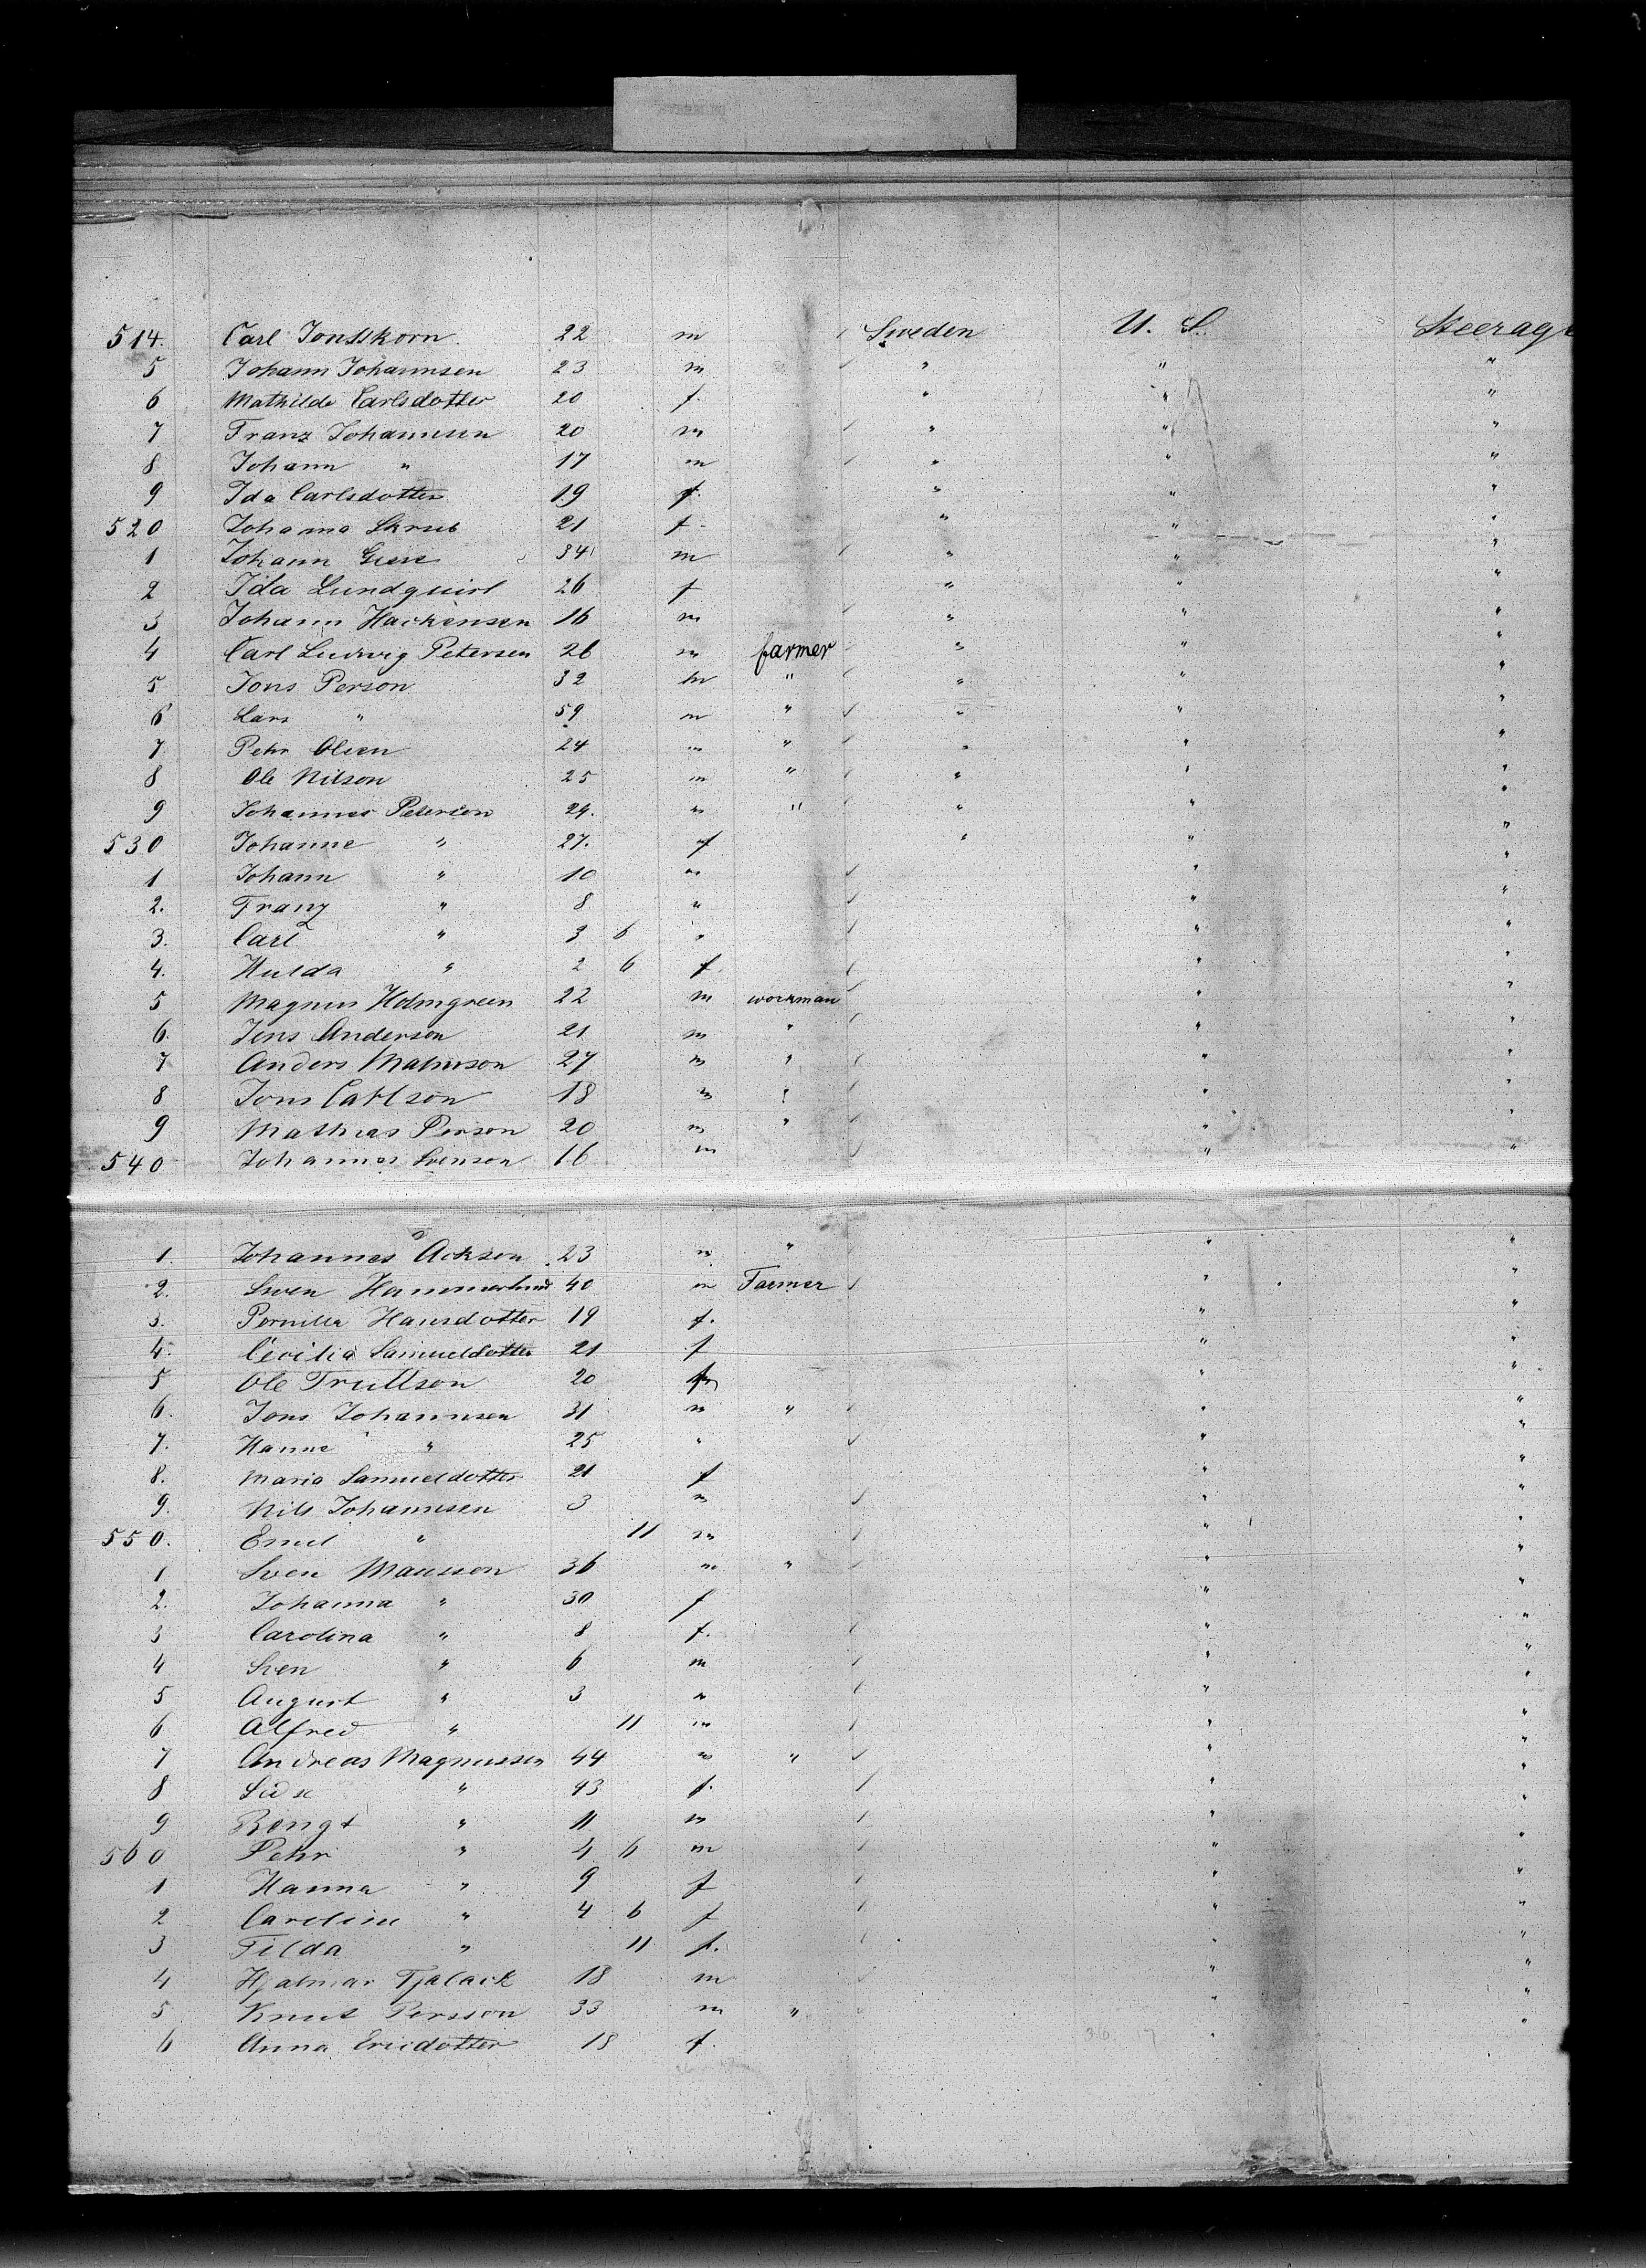 514. Carl Jonsskorn 22 m Sweden U. S. Steerage
5 Johann Johannsen 23 m " " "
6 Mathilde Carlsdotter 20 f. " " "
7 Franz Johannsen 20 m " " "
8 Johann " 17 m " " "
9 Ida Carlsdotter 19 f. " " "
520 Johanna Skrub 21 f. " " "
1 Johann 34 m " " "
2 Ida Lundquist 26 f " " "
3 Johann Hackensen 16 m " " "
4 Carl Ludwig Petersen 26 m farmer " " "
5 Jons Person 32 m " " " "
6 Lars " 59 m " " " "
7 Pehr Olsen 24 m " " " "
8 Ole Nilson 25 m " " " "
9 Johannes Petersen 29. m " " " "
530 Johanne " 27. f " " "
1 Johann " 10 m " "
2. Franz " 8 " " "
3. Carl " 3 6 " " "
4. Hulda " 2 6 f. " "
5 Magnus Holmgreen 22 m workman " "
6. Jens Anderson 21 m " " "
7 Anders 27 m " " "
8 Jons Carlson 18 m " " "
9 Mathias Person 20 m " " "
540 Johannes Svenson 16 m " "
1. Johannes Ackson 23 m " " "
2. Swen Hammerlund 40 m Farmer " "
3. Pernilla Hansdotter 19 f. " "
4. Cecilia Samueldotter 21 f " "
5 Ole Trullson 20 m " "
6. Jons Johannsen 31 m " " "
7. Hanne " 25 " " "
8. Maria Samueldotter 21 f " "
9. Nils Johannsen 3 m " "
550. Emil " 11 m " "
1 Sven Mansson 36 m " " "
2. Johanna " 30 f " "
3 Carolina " 8 f. " "
4 Sven " 6 m " "
5 August " 3 " " "
6 Alfred " 11 m " "
7 Andreas Magnussen 44 m " " "
8 " 43 f. " "
9 Bengt " 11 m " "
560 Pehr " 4 6 m " "
1 Hanna " 9 f " "
2 Caroline " 4 6 f " "
3 Tilda " 11 f. " "
4 Hjalmar Tjalack 18 m " "
5 Knut Persson 33 m " " "
6 Anna Ericdotter 18 f. " "